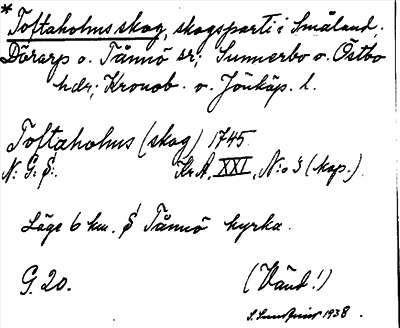 * Toftaholms skog, skogsparti i Småland.
Dörarp o. Tånnö sr; Sunnerbo o. Östbo
hdr; Kronob. o. Jönköp. l.
Toftaholms (skog) 1745
N: G: S:. Kr A, XXI, N:o 3 (kop.).
Läge 6 km. S Tånnö kyrka.
G. 20. (Vänd!)
1938.